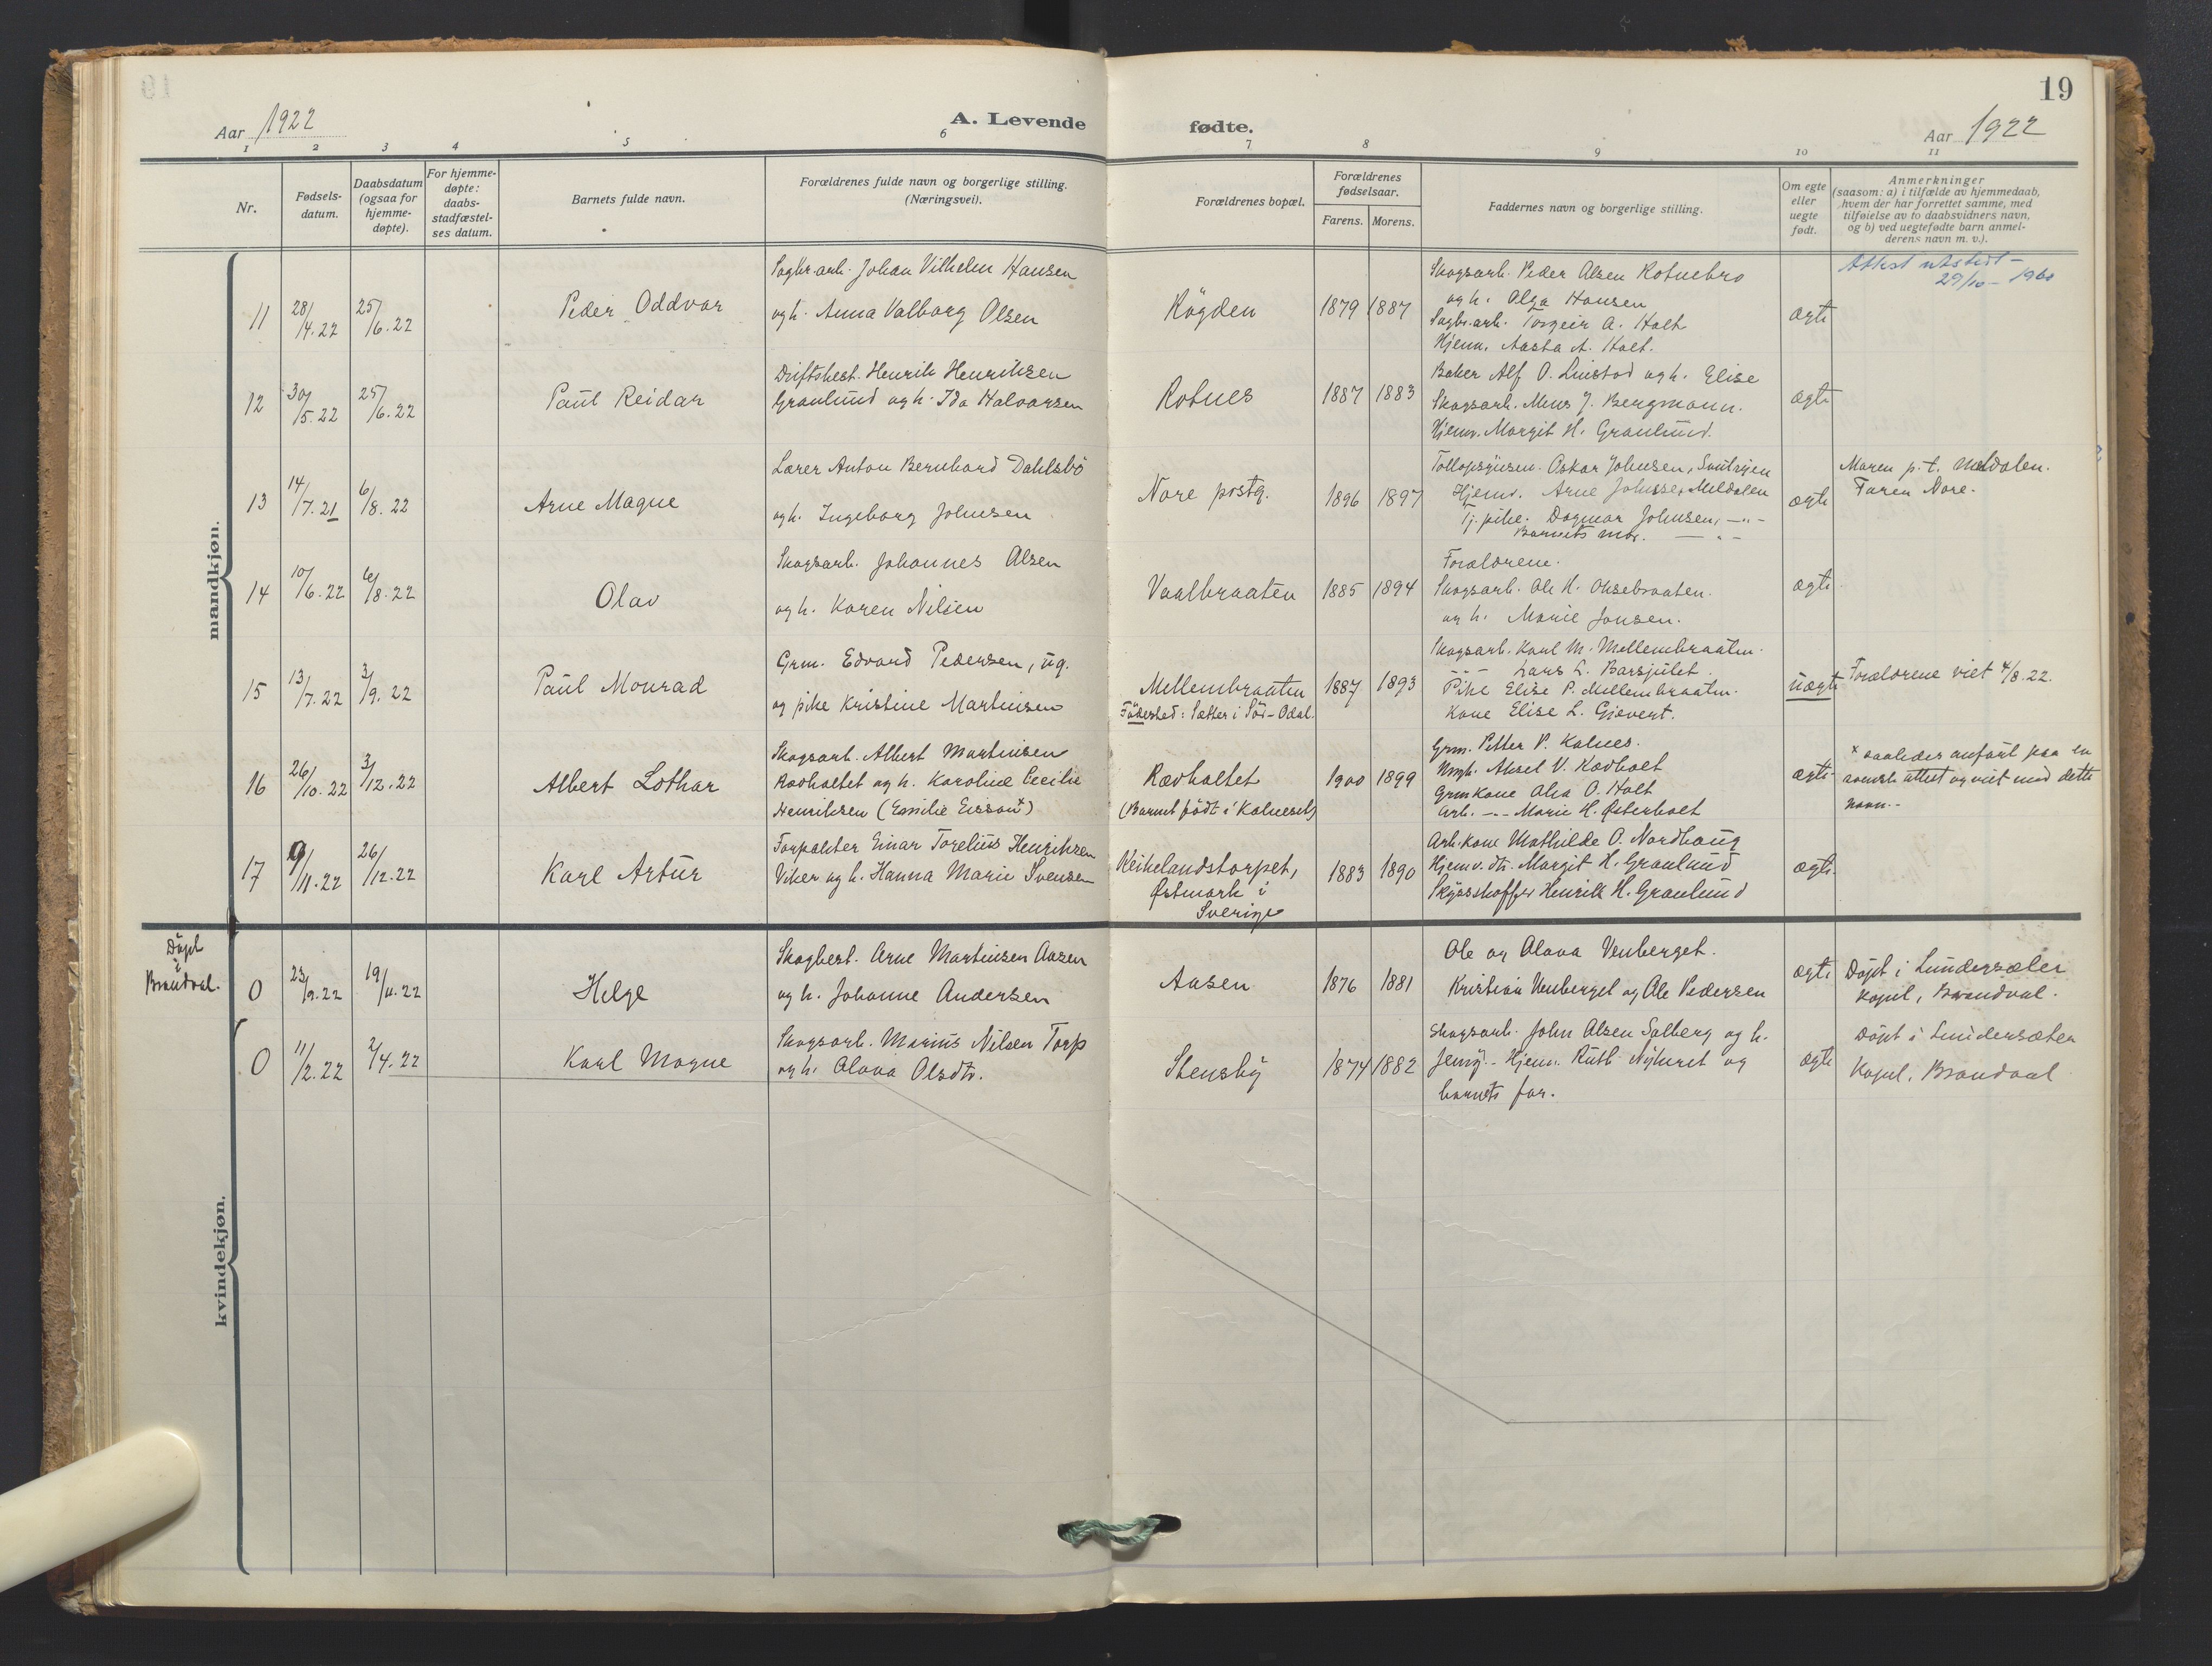 19
Aar 1922
A. Levende
fødte.
Aar 1922
1 2 3 4 5 6 7 8 9 10 11
Nr.
Fødsels-
datum.
Daabsdatum
(ogsaa for
hjemme-
døpte).
For hjemme-
døpte:
daabs-
stadfæstel-
ses datum.
Barnets fulde navn.
Forældrenes fulde navn og borgerlige stilling.
(Næringsvei).
Forældrenes bopæl.
Forældrenes
fødselsaar.
Farens. Morens.
Faddernes navn og borgerlige stilling.
Om egte
eller
uegte
født.
Anmerkninger
(saasom: a) i tilfælde av hjemmedaab,
hvem der har forrettet samme, med
tilføielse av to daabsvidners navn,
og b) ved uegtefødte barn anmel-
derens navn m. v.).
mandkjøn.
11
28/4.22
25/6.22
Peder Oddvar
Sagbr.arb. Johan Vilhelm Hansen
og h. Anna Valborg Olsen
Rögden
1879 1887
Skogsarb. Peder Olsen Rotnebro
og h. Olga Hansen
Sagbr.arb. Torgeir A. Holt
Hjemv. Aasta A. Holt.
ægte
Attest utstedt -
29/10 - 1960
12
30/5.22
25/6.22
Paul Reidar
Driftsbest. Henrik Henriksen
Granlund og h. Ida Halvorsen
Rotnes
1887 1883
Baker Alf O. Linstad og h. Elise
Skogsarb. Mens J. Bergmann.
Hjemv. Margit H. Granlund.
ægte
13
14/7.21
6/8.22
Arne Magne
Lærer Anton Bernhard Dahlsbö
og h. Ingeborg Johnsen
Nore prstg.
1896 1897
Tollopsynsm. Oskar Johnsen,
Hjemv. Arne Johnsen, Meldalen
Tj. pike. Dagmar Johnsen, -"-
Barnets mor. -"-
ægte
Moren p. t. Meldalen.
Faren Nore.
14
10/6.22
6/8.22
Olav
Skogsarb. Johannes Olsen
og h. Karen Nilsen
Vaalbraaten
1885 1894
Forældrene.
Skogsarb. Ole H. Oksebraaten.
og h. Marie Jonsen.
ægte
15
13/7.22
3/9.22
Paul Monrad
Grm. Edvard Pedersen, ug.
og pike Kristine Martinsen
Mellembraaten
Födested: Sætter i Sör-Odal.
1887 1893
Skogsarb. Karl M. Mellembraaten.
- - - Lars L. Barsjület.
Pike Elise P. Mellembraaten.
Kone Elise L. Gjevert.
uægte
Forældrene viet 4/8.22.
16
26/10.22
3/12.22
Albert Lothar
Skogsarb. Albert Martinsen
Rævholtet og h. Karoline Cecilie
Henriksen (Emilie Ersson x)
Rævholtet
(Barnet födt i Kalneset)
1900 1899
Grm. Petter P. Kalnes.
Aksel V. Rævholt
Grm Kone Alea O. Holt
Arb. -"- Marie H. Østerholt
ægte
x saaledes anfört paa en
svensk attest og viet med dette
navn.-
17
9/11.22
26/12.22
Karl Artur
Forpakter Einar Torelius Henriksen
Viker og h. Hanna Marie Svensen
Keikelandstorpet,
Østmark i
Sverige
1883 1890
Arb. kone Mathilde O. Nordhaug
Hjemv. dtr. Margit H. Granlund
Skysskaffer Henrik H. Granlund
ægte
kvindekjøn.
Döpt
i
Brandval.
0
23/9.22
19/11.22
Helge
Skogbest. Arne Martinsen Aasen
og h. Johanne Andersen
Aasen
1876 1881
Ole og Olava Venberget.
Kristian Venberget og Ole Pedersen
ægte
Döpt i Lundersæter
kapel, Brandval.
0
11/2.22
2/4.22
Karl Magne
Skogsarb. Marius Nilsen Torp
og h. Olava Olsdtr.
Stensby
1874 1882
Skogsarb. John Olsen Solberg og h.
Jenny.- Hjemv. Ruth Nyhuset og
barnets far.
ægte
Döpt i Lundersæter
Kapel, Brandval